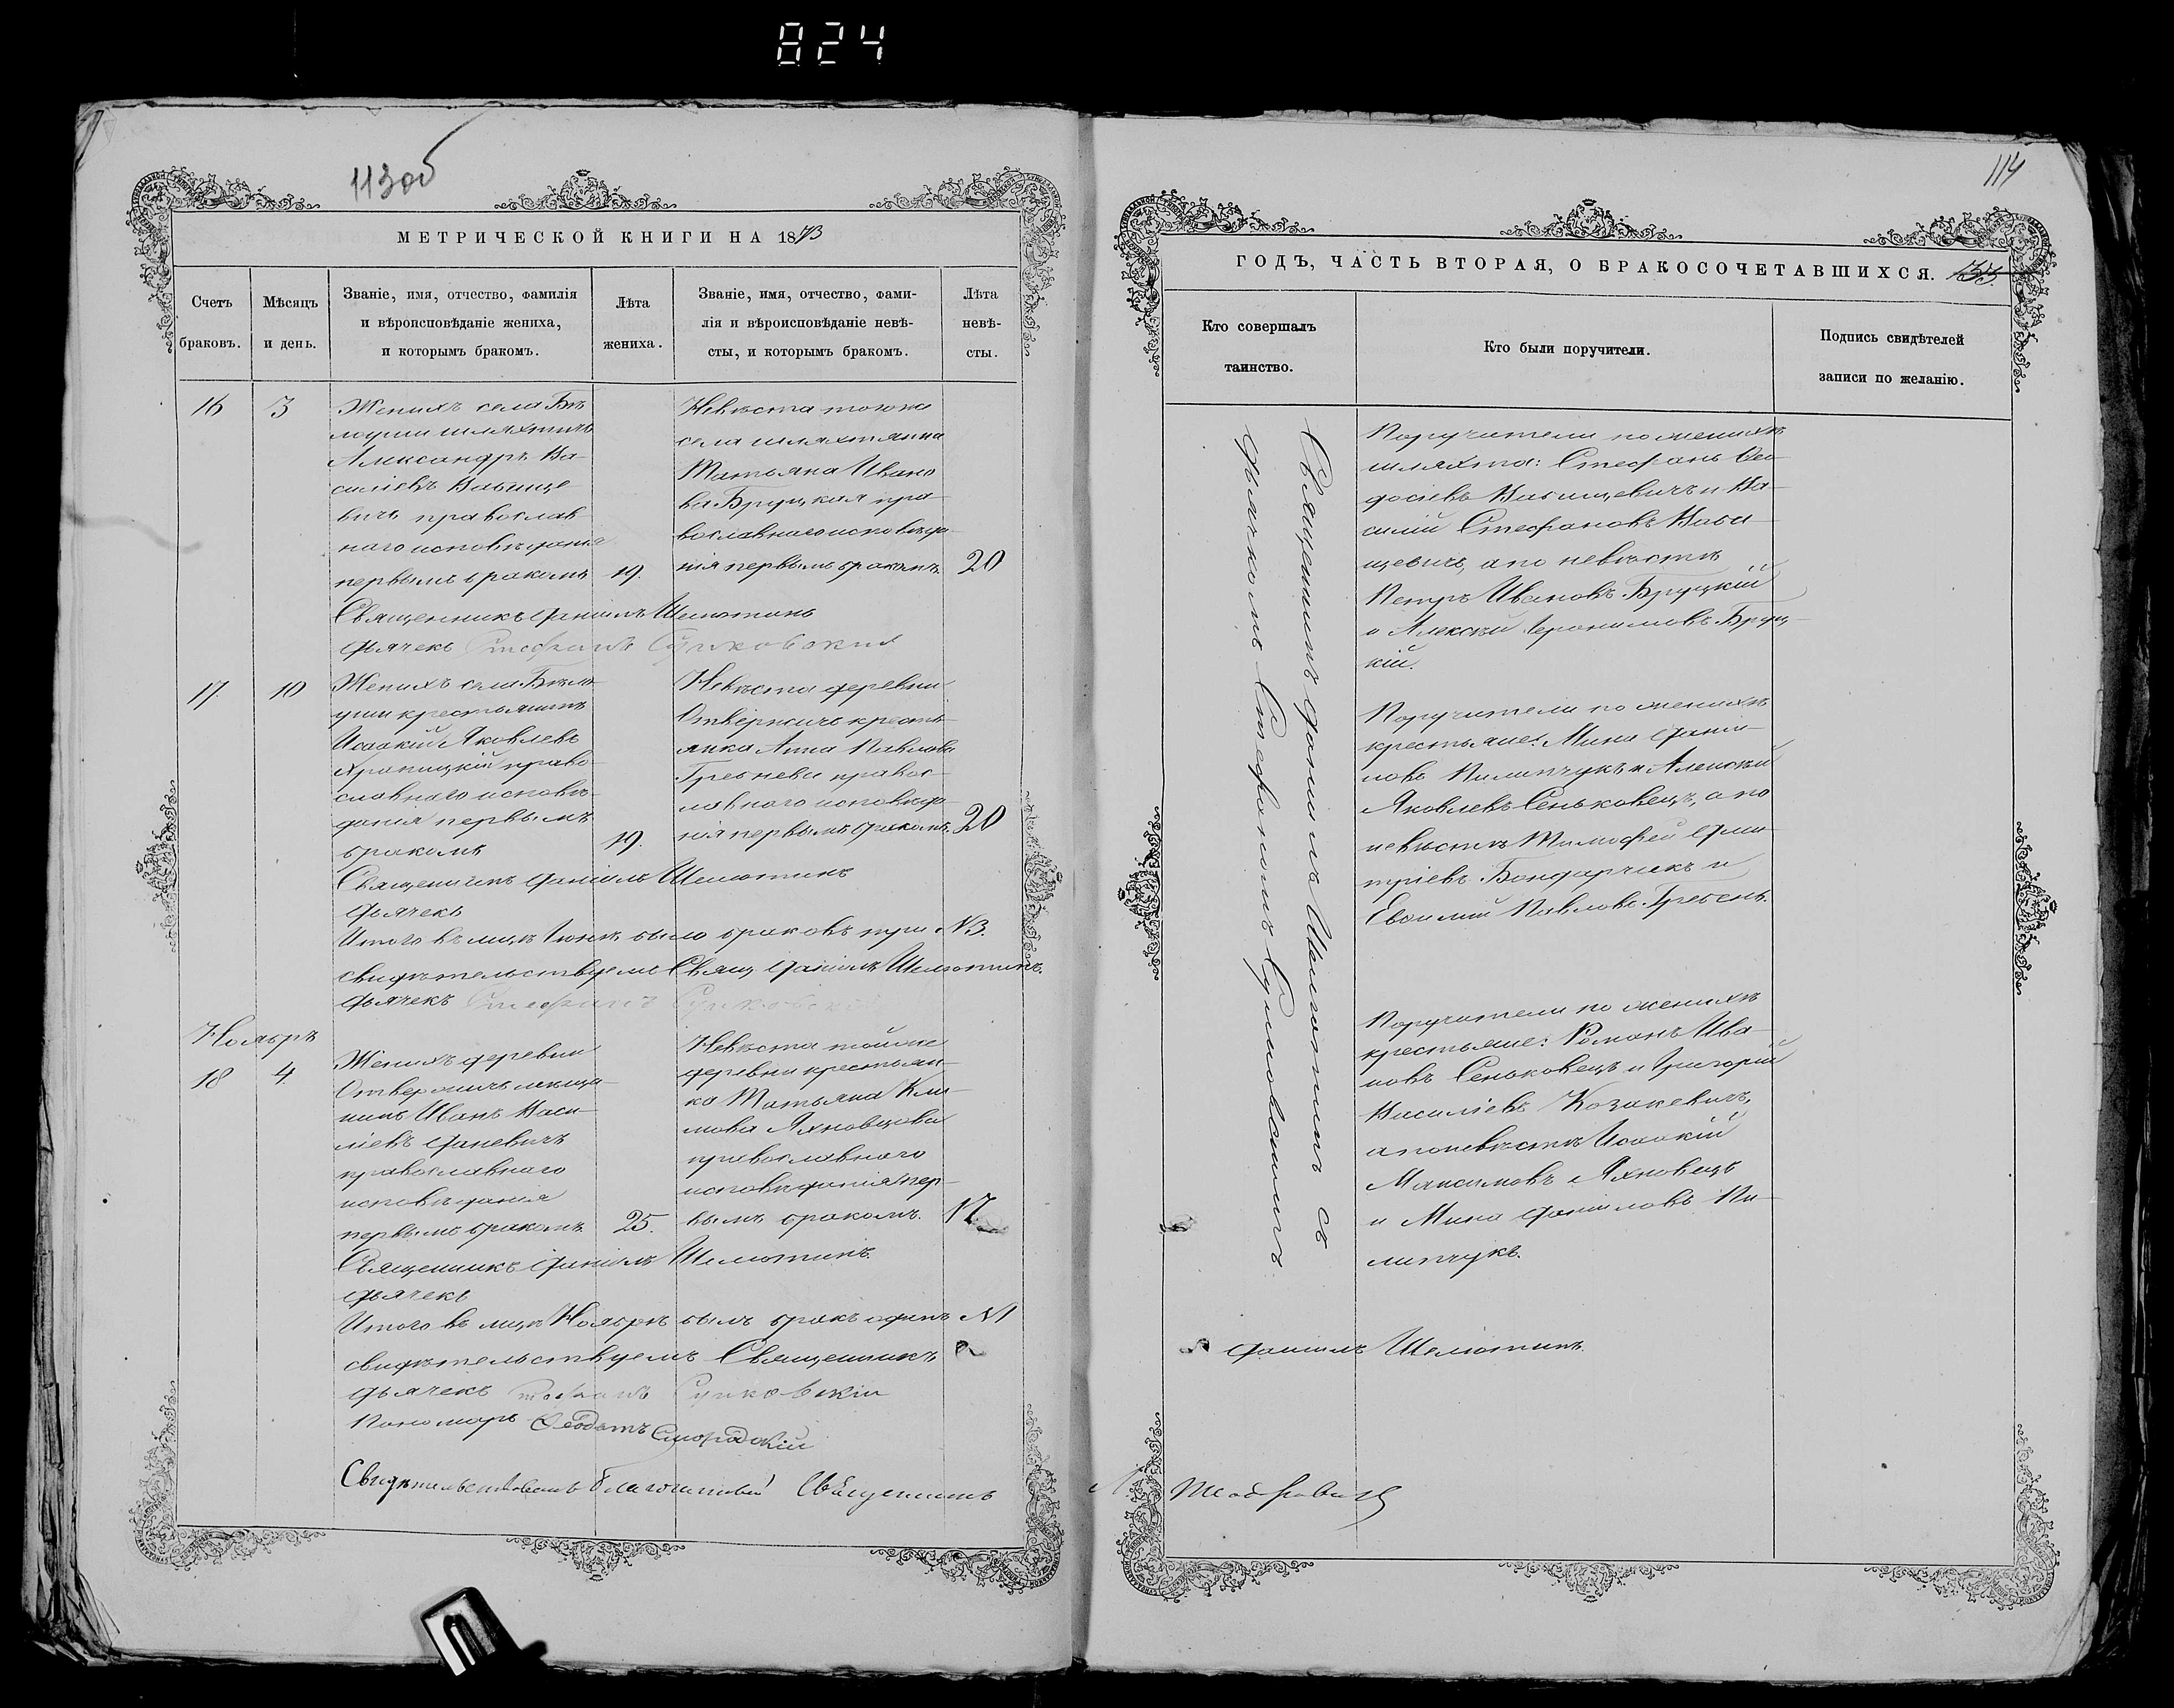 824
113 об
МЕТРИЧЕСКОЙ КНИГИ НА 1873
Счетъ браковъ.
Мѣсяцъ и день.
Званіе, имя, отчество, фамилія
и вѣроисповѣданіе жениха,
и которымъ бракомъ.
Лѣта жениха.
Званіе, имя, отчество, фами-
лія и вѣроисповѣданіе невѣ-
сты, и которымъ бракомъ.
Лѣта невѣ-
сты.
16
3
Женихъ села Бѣ-
лоуши шляхтичъ
Александръ Ва-
силіевъ
вичъ православ
наго исповѣданія
первымъ бракомъ
19.
Невѣста тогоже
села шляхтянка
Татьяна Ивано
ва Бруцкая пра-
вославнаго исповѣда-
нія первымъ бракомъ
20
Священникъ Даніилъ Шелютинъ
Дьячекъ Стефанъ
17
10
Женихъ села Бѣло-
уши крестьянинъ
Исаакій Яковлевъ
Храпицкій право-
славнаго исповѣ-
данія первымъ
бракомъ
19.
Невѣста деревни
Отвержичъ кресть-
янка Анна Павлова
Гребнева правос-
лавнаго исповѣда-
нія первымъ бракомъ
20
Священникъ Даніилъ Шелютинъ
Дьячекъ
Итого въ мцѣ Іюнѣ было браковъ три №3.
свидѣтельствуемъ Свящ. Даніилъ Шелютинъ.
Дьячекъ Стефанъ
Ноябрь
18
4
Женихъ деревни
Отвержичъ мѣща-
нинъ Иванъ Васи-
ліевъ Даневичъ
православнаго
исповѣданія
первымъ бракомъ
25.
Невѣста тойже
деревни крестьян-
ка Татьяна Кли-
мова Яхновцова
православнаго
исповѣданія пер-
вымъ бракомъ.
17
Священникъ Даніилъ Шелютинъ.
Дьячекъ
Итого въ мцѣ Ноябрѣ былъ бракъ одинъ №1
свидѣтельствуемъ Священникъ
Дьячекъ
Пономарь Ѳеодотъ
Благочинный Священникъ
114
ГОДЪ, ЧАСТЬ ВТОРАЯ, О БРАКОСОЧЕТАВШИХСЯ.
Кто совершалъ
таинство.
Кто были поручители.
Подпись свидѣтелей
записи по желанію.
Священникъ Даніилъ Шелютинъ съ
Дьячкомъ Стефаномъ
Поручители по женихѣ
шляхта: Стефанъ Ѳео-
досіевъ и Ва-
силій Стефановъ
а по невѣстѣ
Петръ Ивановъ Бруцкій
и Алексѣй Іеронимовъ Бруц-
кій.
Поручители по женихѣ
крестьяне: Мина Дани-
ловъ Пилипчукъ и Алексѣй
Яковлевъ Сеньковецъ, а по
невѣстѣ Тимофей Дми-
тріевъ Бондарчикъ и
Павловъ Гребень.
Поручители по женихѣ
крестьяне: Романъ Ива-
новъ Сеньковецъ и Григорій
Василіевъ Козакевичъ,
а по невѣстѣ Исаакій
Максимовъ Яхновецъ
и Мина Даниловъ Пи-
липчукъ.
Даніилъ Шелютинъ.